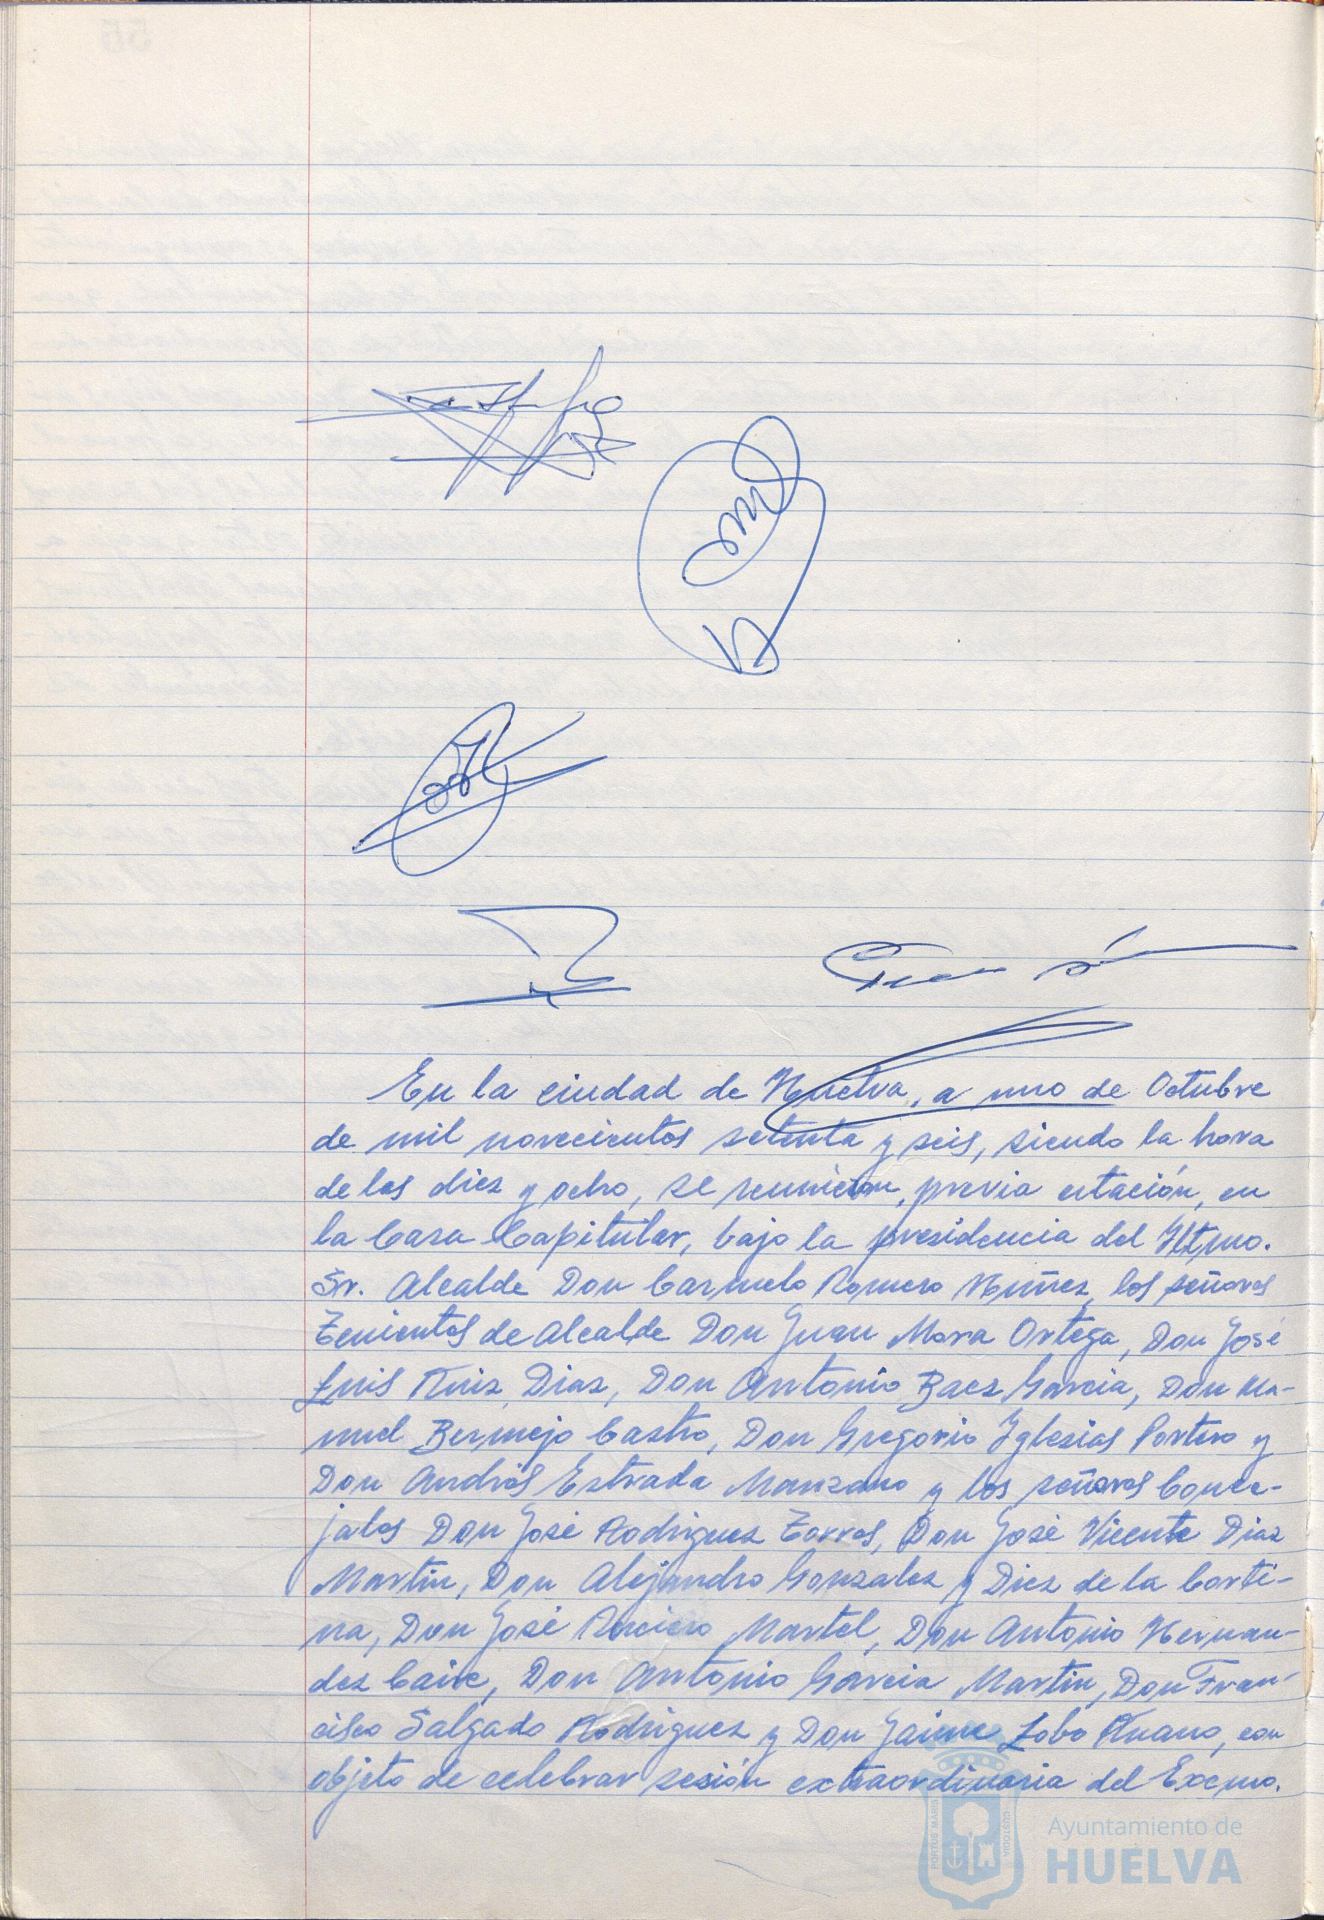 En la ciudad de Huelva, a uno de Octubre
de mil novecientos setenta y seis, siendo la hora
de las diez y ocho, se reunieron, previa citación, en
la Casa Capitular, bajo la presidencia del Iltmo.
Sr. Alcalde Don Carmelo Romero Nuñez, los señores
Tenientes de Alcalde Don Juan Mora Ortega, Don José
Luis Ruiz Diaz, Don Antonio Baez Garcia, Don Ma-
nuel Bermejo Castro, Don Gregorio Iglesias Portero y
Don Andrés Estrada Manzano y los señores Conce-
jales Don José Rodriguez Torres, Don José Vicente Diaz
Martin, Don Alejandro Gonzalez y Diez de la Corti-
na, Don José Martel, Don Antonio Hernan-
dez Caire, Don Antonio Garcia Martin, Don Fran-
cisco Salgado Rodriguez y Don Jaime Lobo Ruano, con
objeto de celebrar sesión extraordinaria del Excmo.
PORTUS MARIS
CUSTODIA
Ayuntamiento de
HUELVA